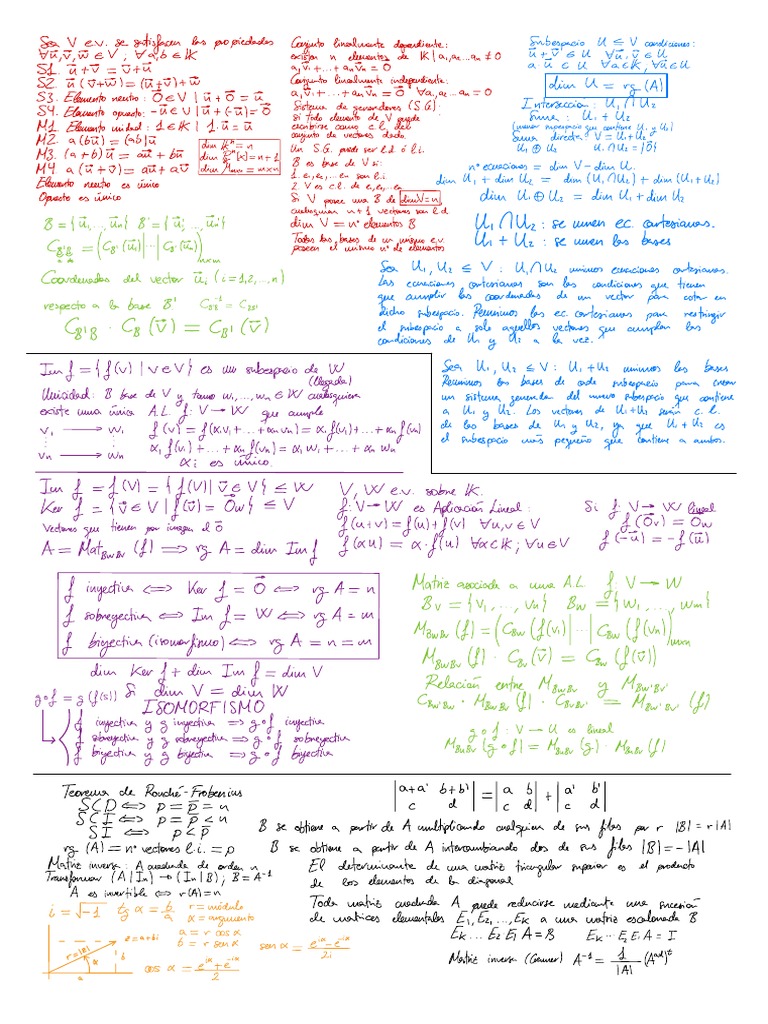 Sea V e.v. se satisfacen las propiedades
∀u⃗,v⃗,w⃗ ∈ V, ∀a,b ∈ K
S1. u⃗+v⃗ = v⃗+u⃗
S2. u⃗(v⃗+w⃗) = (u⃗+v⃗)+w⃗
S3. Elemento neutro: 0⃗∈V | u⃗+0⃗ = u⃗
S4. Elemento opuesto: -u⃗∈V | u⃗+(-u⃗) = 0⃗
M1. Elemento unidad: 1∈K | 1·u⃗ = u⃗
M2. a(bu⃗) = (ab)u⃗
M3. (a+b)u⃗ = au⃗+bu⃗
M4. a(u⃗+v⃗) = au⃗+av⃗
dim Kⁿ = n
dim Pⁿ[x] = n+1
dim Mmxn = m×n
Elemento neutro es único
Opuesto es único
B = {u⃗1, ..., u⃗n} B' = {u⃗'1, ..., u⃗'n}
C_B'B = (C_B'(u⃗1)|...|C_B'(u⃗n))n×n
Coordenadas del vector u⃗i (i=1,2,...,n)
respecto a la base B' C_B'B⁻¹ = C_BB'
C_B'B · C_B(v⃗) = C_B'(v⃗)
Conjunto linealmente dependiente:
existen n elementos de K | a1,a2...an ≠ 0
a1v⃗1+...+anv⃗n = 0
Conjunto linealmente independiente:
a1v⃗1+...+anv⃗n = 0⃗ ⟺ a1,a2...an = 0
Sistema de generadores (S.G.):
si todo elemento de V puede
escribirse como c.l. del
conjunto de vectores dados
Un S.G. puede ser l.d ó l.i.
B es base de V si:
1. e1,e2,...en son l.i
2. V es c.l. de e1,e2,...en
Si V posee una B de dim V = n
cualesquiera n+1 vectores son l.d
dim V = nº elementos B
Todas las bases de un mismo e.v.
poseen el mismo nº de elementos
Subespacio U ≤ V condiciones:
u⃗+v⃗ ∈ U ∀u⃗,v⃗ ∈ U
a·u⃗ ∈ U ∀a∈K, ∀u⃗∈U
dim U = rg (A)
Intersección: U1∩U2
Suma: U1+U2
(menor subespacio que contiene U1 y U2)
Suma directa: V = U1+U2
U1⊕U2 U1∩U2 = {0⃗}
nº ecuaciones = dim V - dim U.
dim U1 + dim U2 = dim (U1∩U2) + dim (U1+U2)
dim U1⊕U2 = dim U1 + dim U2
U1∩U2: se unen ec. cartesianas.
U1+U2: se unen las bases
Sea U1,U2 ≤ V: U1∩U2 unimos ecuaciones cartesianas.
Las ecuaciones cartesianas son las condiciones que tienen
que cumplir las coordenadas de un vector para estar en
dicho subespacio. Reunimos las ec. cartesianas para restringir
el subespacio a solo aquellos vectores que cumplan las
condiciones de U1 y U2 a la vez.
Im f = {f(v) | v∈V} es un subespacio de W
(llegada)
Unicidad: B base de V y tomo w1,...,wn ∈ W cualesquiera
existe una única A.L f: V→W que cumple
v1 → w1 f(v) = f(α1v1+...+αnvn) = α1f(v1)+...+αnf(vn)
vn → wn α1f(v1)+...+αnf(vn) = α1w1+...+αnwn
αi es único.
Sea U1,U2 ≤ V: U1+U2 unimos las bases
Reunimos las bases de cada subespacio para crear
un sistema generador del nuevo subespacio que contiene
a U1 y U2. Los vectores de U1+U2 serán c.l.
de las bases de U1 y U2, ya que U1+U2 es
el subespacio más pequeño que contiene a ambos.
Im f = f(V) = {f(v) | v⃗∈V} ≤ W
Ker f = {v⃗∈V | f(v⃗) = 0⃗w} ≤ V
Vectores que tienen por imagen el 0⃗
A = Mat_BwBv(f) ⟹ rg A = dim Im f
V, W e.v. sobre K.
f: V→W es Aplicación Lineal:
f(u+v) = f(u)+f(v) ∀u,v∈V
f(αu) = α·f(u) ∀α∈K; ∀u∈V
Si f: V→W lineal
f(0⃗v) = 0⃗w
f(-u⃗) = -f(u⃗)
f inyectiva ⟺ Ker f = 0⃗ ⟺ rg A = n
f sobreyectiva ⟺ Im f = W ⟺ rg A = m
f biyectiva (isomorfismo) ⟺ rg A = n = m
dim Ker f + dim Im f = dim V
g∘f = g(f(s)) Si dim V = dim W
ISOMORFISMO
f inyectiva y g inyectiva ⟹ g∘f inyectiva
f sobreyectiva y g sobreyectiva ⟹ g∘f sobreyectiva
f biyectiva y g biyectiva ⟹ g∘f biyectiva
Matriz asociada a una A.L. f: V→W
Bv = {v1,...,vn} Bw = {w1,...,wm}
M_BwBv(f) = (C_Bw(f(v1)|...|C_Bw(f(vn))m×n
M_BwBv(f) · C_Bv(v⃗) = C_Bw(f(v⃗))
Relación entre M_BwBv y M_Bw'Bv'
C_Bw'Bw · M_BwBv(f) · C_BvBv' = M_Bw'Bv'(f)
g∘f: V→U es lineal
M_BuBv(g∘f) = M_BuBw(g) · M_BwBv(f)
Teorema de Rouché-Frobenius
SCD ⟺ p = p̄ = n
SCI ⟺ p = p̄ < n
SI ⟺ p < p̄
rg (A) = nº vectores l.i. = p
Matriz inversa: A cuadrada de orden n
Transformar (A|In) → (In|B); B = A⁻¹
A es invertible ⟺ r(A) = n
|a+a' b+b'| = |a b| + |a' b'|
|c d| |c d| |c d|
B se obtiene a partir de A multiplicando cualquiera de sus filas por r |B| = r|A|
B se obtiene a partir de A intercambiando dos de sus filas |B| = -|A|
El determinante de una matriz triangular superior es el producto
de los elementos de la diagonal
Toda matriz cuadrada A puede reducirse mediante una sucesión
de matrices elementales E1,E2,...,EK a una matriz escalonada B
EK...E2E1A = B EK...E2E1A = I
Matriz inversa (Gauss) A⁻¹ = 1/|A| (A^ad)^t
i = √-1 tg α = b/a r = módulo
α = argumento
a = r cos α
b = r sen α
z = a+bi
r = |z|
α
b
a
sen α = (e^iα - e^-iα)/2i
cos α = (e^iα + e^-iα)/2